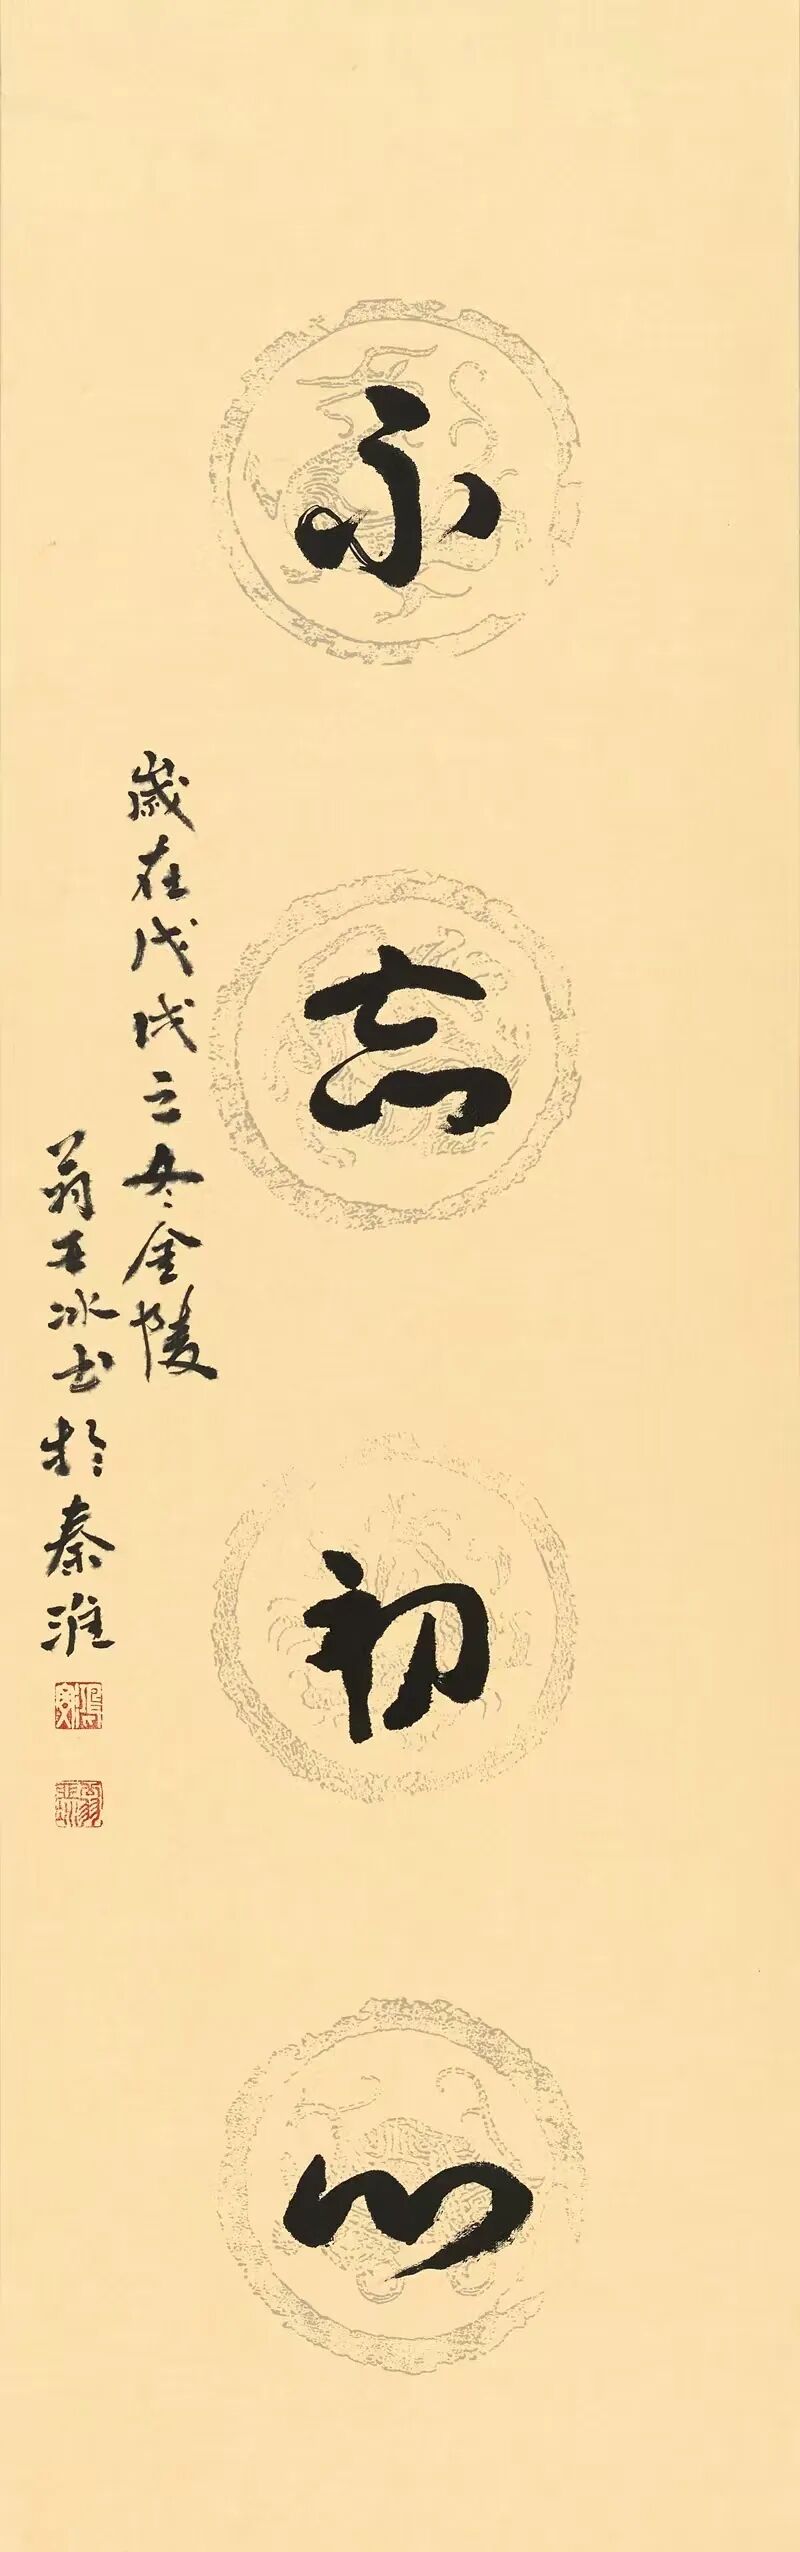 不忘初心
歲在戊戌之冬金陵
翁玉冰書於秦淮